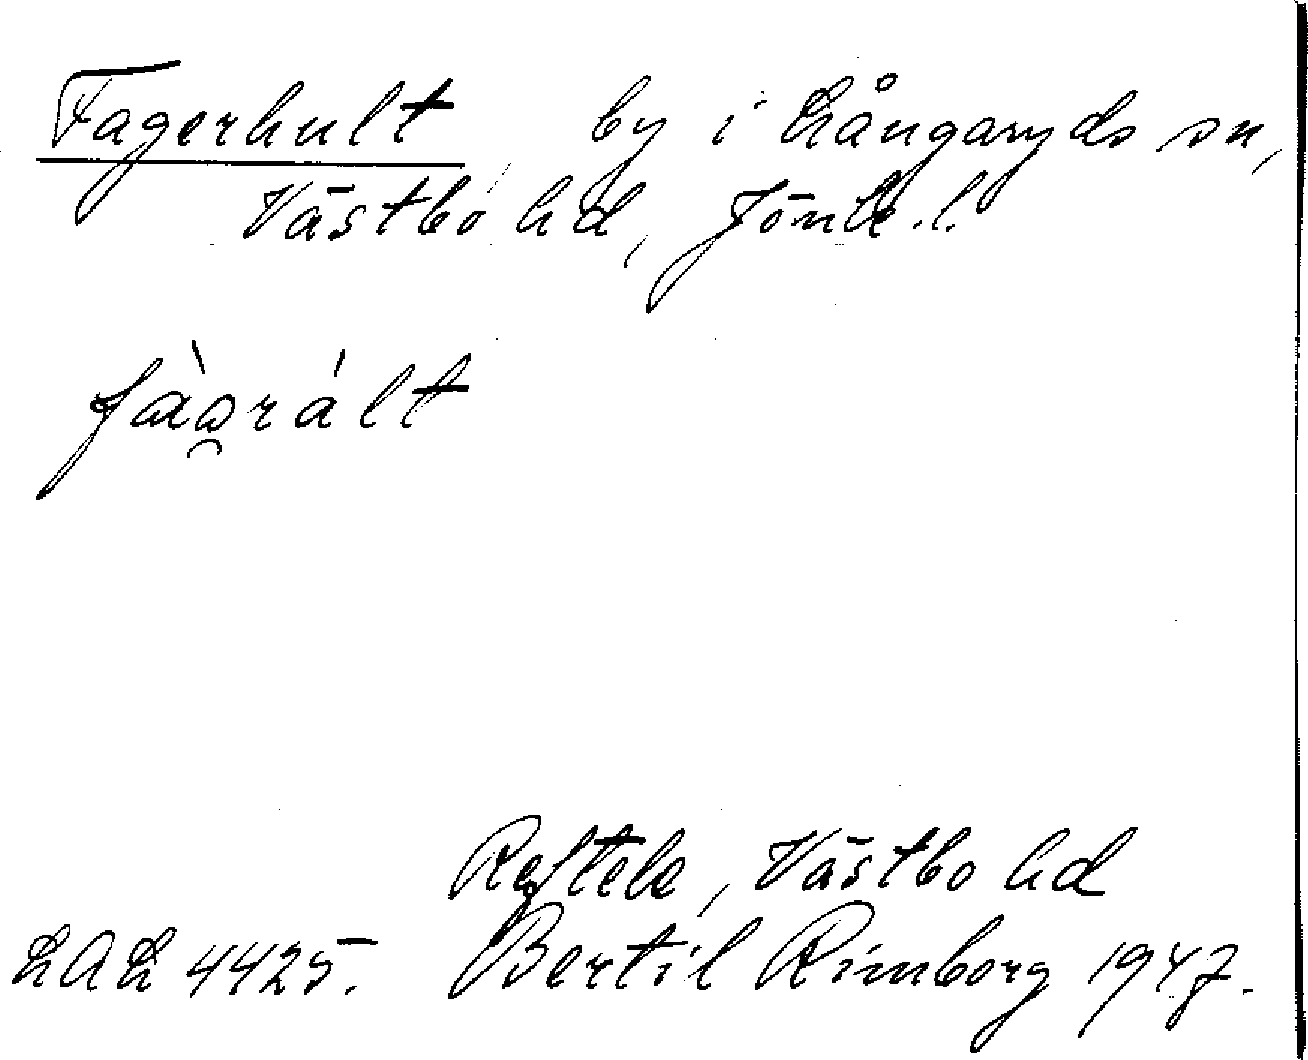 Fagerhult, by i Långaryds sn,
Västbo hd, Jönk.l.
fàgrált
Reftele, Västbo hd
LAL 4425. Bertil Rimborg 1947.